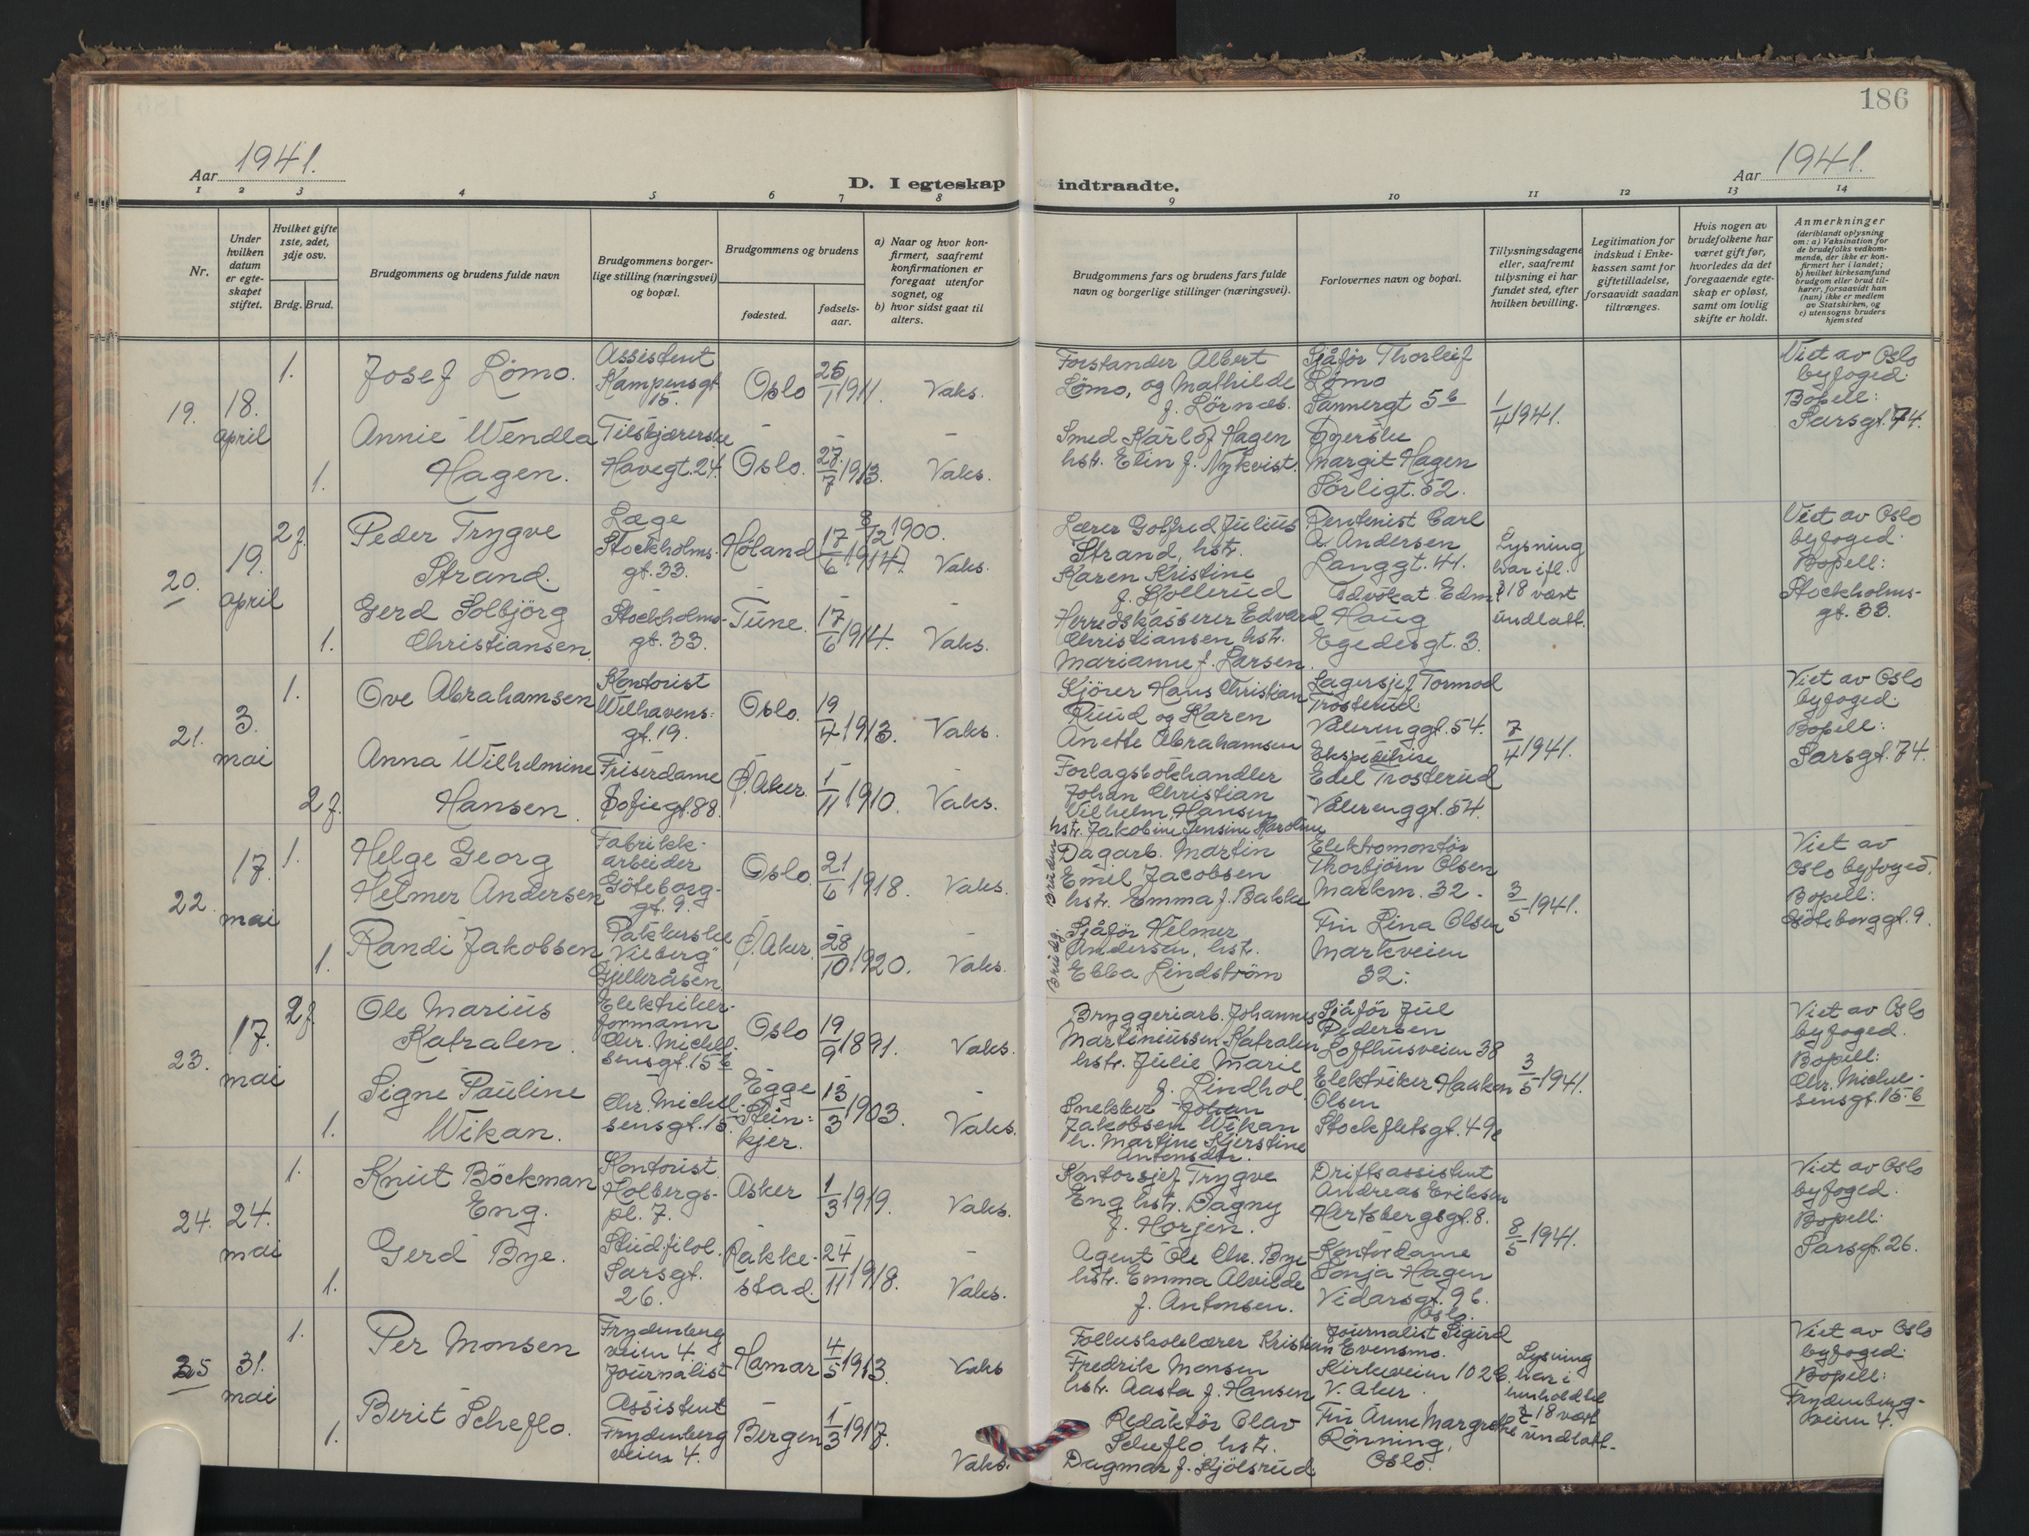 186
Aar 1941.
D. I egteskap indtraadte.
Aar 1941.
1 2 3 4 5 6 7 8 9 10 11 12 13 14
Nr.
Under hvilken datum er egte-skapet stiftet.
Hvilket gifte 1ste, 2det, 3dje osv.
Brdg. Brud.
Brudgommens og brudens fulde navn
Brudgommens borger-lige stilling (næringsvei) og bopæl.
Brudgommens og brudens
fødested.
fødsels-aar.
a) Naar og hvor kon-firmert, saafremt konfirmationen er foregaat utenfor sognet, og
b) hvor sidst gaat til alters.
Brudgommens fars og brudens fars fulde navn og borgerlige stillinger (næringsvei).
Forlovernes navn og bopæl.
Tillysningsdagene eller, saafremt tillysning ei har fundet sted, efter hvilken bevilling.
Legitimation for indskud i Enke-kassen samt for giftetilladelse, forsaavidt saadan tiltrænges.
Hvis nogen av brudefolkene har været gift før, hvorledes da det foregaaende egte-skap er opløst, samt om lovlig skifte er holdt.
Anmerkninger
(deriblandt oplysning om: a) Vaksination for de brudefolks vedkom-mende, der ikke er kon-firmert her i landet; b) hvilket kirkesamfund brudgom eller brud til-hører, forsaavidt han (hun) ikke er medlem av Statskirken, og c) utensogns bruders hjemsted
19. 18. april
1. Josef Lömo.
Assistent Kampensgt 15.
Oslo 25/1 1911. Vaks.
Forstander Albert Lömo, og Mathilde f. Lörnæs.
Sjåför Thorleif Lömo Sannergt 5 b
1/4 1941.
Viet av Oslo byfoged. Bopell: Sarsgt. 74.
1. Annie Wendla Hagen.
Tilskjærerske Havegt. 24.
Oslo. 27/7 1913. Vaks.
Smed Karl Hagen hstr. Elin f. Nykvist.
Syerske Margit Hagen Sörligt. 52.
20. 19. april
2 f. Peder Trygve Strand.
Læge Stockholms-gt. 33.
Höland 17/6 1914. 8/12 1900. Vaks.
Lærer Gotfred Julius Strand, hst. Karen Kristine f. Kollerud
Rentenist Carl A. Andersen Langgt. 41.
Lysning var ifl. § 18 vært undlatt.
Viet av Oslo byfoged. Bopell: Stockholms-gt. 33.
1. Gerd Solbjörg Christiansen.
Stockholms-gt. 33.
Tune. 17/6 1914. Vaks.
Herredskasserer Edvard Christiansen hst. Marianne f. Larsen.
Advokat Edm. Haug Egedesgt. 3.
21. 3. mai
1. Ove Abrahamsen
Kontorist Welhavens-gt. 19.
Oslo. 19/4 1913. Vaks.
Kjörer Hans Christian Ruud og Karen Anette Abrahamsen
Lagersjef Tormod Trosterud Vålerenggt. 54.
7/4 1941.
Viet av Oslo byfoged. Bopell: Sarsgt. 74.
2 f. Anna Wilhelmine Hansen.
Friserdame Sofiegt. 88.
Ø. Aker. 1/11 1910. Vaks.
Forlagsbokhandler Johan Christian Vilhelm Hansen hstr. Jakobine Jensine Karoline
Ekspeditrise Edel Trosterud Vålerenggt. 54.
22. 17. mai
1. Helge Georg Helmer Andersen
Fabrikk-arbeider Göteborg-gt. 9.
Oslo. 21/6 1918. Vaks.
Bruden Dagarb. Martin Emil Jacobsen hst. Emma f. Bakke
Elektromontör Thorbjörn Olsen Markvn. 32.
3/5 1941.
Viet av Oslo byfoged. Bopell: Göteborggt. 9.
1. Randi Jakobsen
Pakkerske "Viberg" Gjelleråsen
Ø. Aker. 28/10 1920. Vaks.
Brudg. Sjåför Helmer Andersen, hst. Ebba Lindström
Fru Lina Olsen Markveien 32.
23. 17. mai
2 f. Ole Marius Katralen.
Elektriker-formann Chr. Michell-sensgt. 15 b
Oslo 19/9 1891. Vaks.
Bryggeriarb. Johannes Martiniussen Katralen hstr. Julie Marie f. Lindhol
Sjåför Jul Pedersen Lofthusveien 38
3/5 1941.
Viet av Oslo byfoged. Bopell: Chr. Michel-sensgt. 15. b
1. Signe Pauline Wikan.
Chr. Michell-sensgt. 15.
Egge Stein-kjer. 13/3 1903. Vaks.
Snekker Johan Jakobsen Wikan h. Martine Kjerstine Antonsdtr.
Elektriker Haakon Olsen Stockfletsgt. 49c
24. 24. mai
1. Knut Böckman Eng.
Kontorist Holbergs-pl. 7.
Asker 1/3 1919. Vaks.
Kontorsjef Trygve Eng hst. Dagny f. Horjen.
Driftsassistent Andreas Eriksen Hertsbergsgt. 8.
8/5 1941.
Viet av Oslo byfoged. Bopell: Sarsgt. 26.
1. Gerd Bye.
Stud. filol. Sarsgt. 26.
Rakke-stad. 24/11 1918. Vaks.
Agent Ole Chr. Bye hst. Emma Alvilde f. Antonsen.
Kontordame Sonja Hagen Vidarsgt. 9 b. Oslo.
25 31. mai
1. Per Monsen
Frydenberg veien 4 Journalist
Hamar 4/5 1913. Vaks
Folkeskolelærer Kristian Fredrik Monsen hst. Aasta f. Hansen
Journalist Sigurd Evensmo. Kirkeveien 102 E. V. Aker.
Lysning var i henhold til § 18 vært undlatt.
Viet av Oslo byfoged: Bopell: Frydenberg-veien 4.
1. Berit Scheflo.
Assistent Frydenberg veien 4.
Bergen 1/3 1917. Vaks.
Redaktör Olav Scheflo, hst. Dagmar f. Kjölsrud
Fru Anne Margrethe Rönning, Oslo.